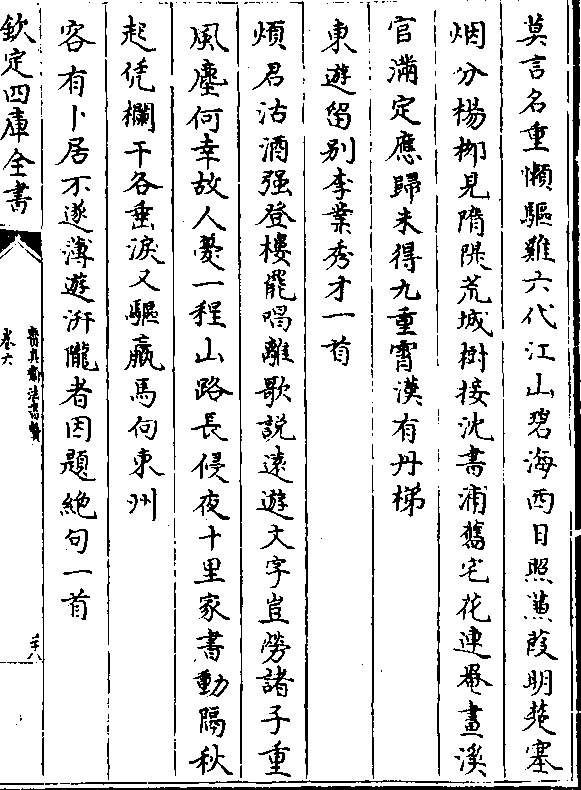 莫言名重懶驅雞六代江山碧海西日照蒹葭明楚塞
烟分楊柳見隋隄荒城樹接沈書浦舊宅花連罨畫溪
官滿定應歸未得九重霄漢有丹梯
東遊留別李業秀才一首
煩君沽酒强登樓罷唱離歌說遠遊文字豈勞諸子重
風塵何幸故人憂一程山路長侵夜十里家書動隔秋
起凭欄干各垂淚又驅羸馬向東州
客有卜居不遂薄遊汧隴者因題絶句一首
欽定四庫全書
寶真齋法書贊
卷六
二十八